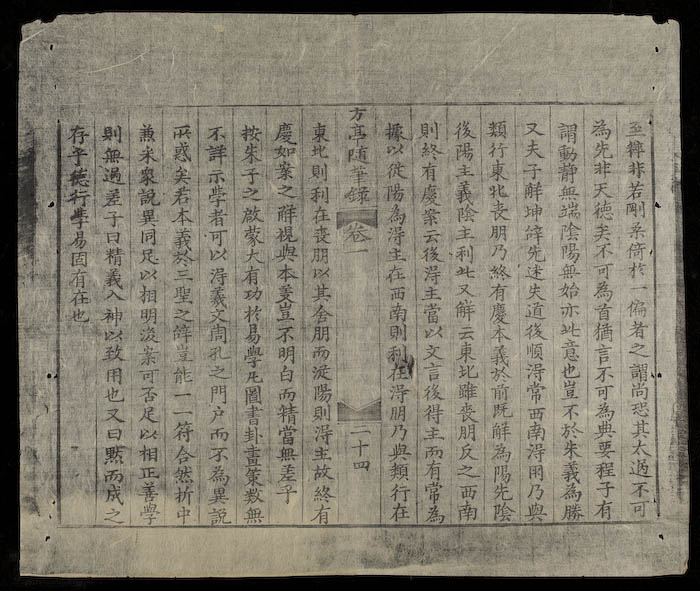 至粹非若剛柔倚於一偏者之謂尚恐其太過不可
為先非天德矣不可為首猶言不可為典要程子有
謂動静無端陰陽無始亦此意也豈不於朱義為勝
又夫子觧坤辝先迷失道後順淂常西南淂朋乃與
類行東北丧朋乃終有慶本義於前既解為陽先陰
後陽主義陰主利此又解云東北雖丧朋反之西南
則終有慶案云後淂主當以文言後得主而有常為
據以從陽為淂主在西南則利在淂朋乃與類行在
方亭随筆錄 卷一 二十四
東北則利在丧朋以其舍朋而從陽則淂主故終有
慶如案之觧視與本義豈不明白而精當無差乎
按朱子之啟蒙大有功於易學凡圖書卦畫策数無
不詳示學者可以淂羲文周孔之門户而不為異說
所惑矣若本義於三聖之辝豈能一一符合然折中
兼采衆說異同足以相明淩案可否足以相正善學
則無過差子曰精義入神以致用也又曰黙而成之
存乎徳行學易固有在也